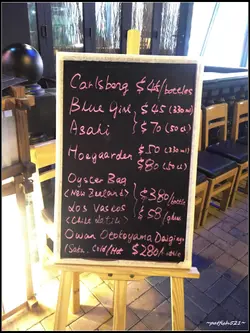 Carlsberg $45/bottles
Blue Girl $45 (330ml)
Asahi $70 (50cl)
Hoegaarden $50 (330ml)
$80 (50cl)
Oyster Bay
(New Zealand) $380/bottle
Los Vascos $58/glass
(Chile
Owan Otokoyama Daiginjo
(Sake, Cold/Hot $280/bottle